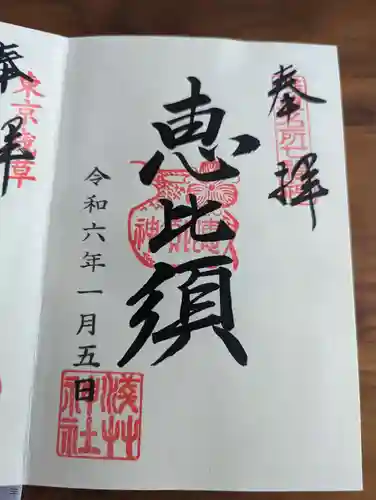 奉拝
恵比須
令和六年一月五日
浅草神社
奉拝
東京浅草